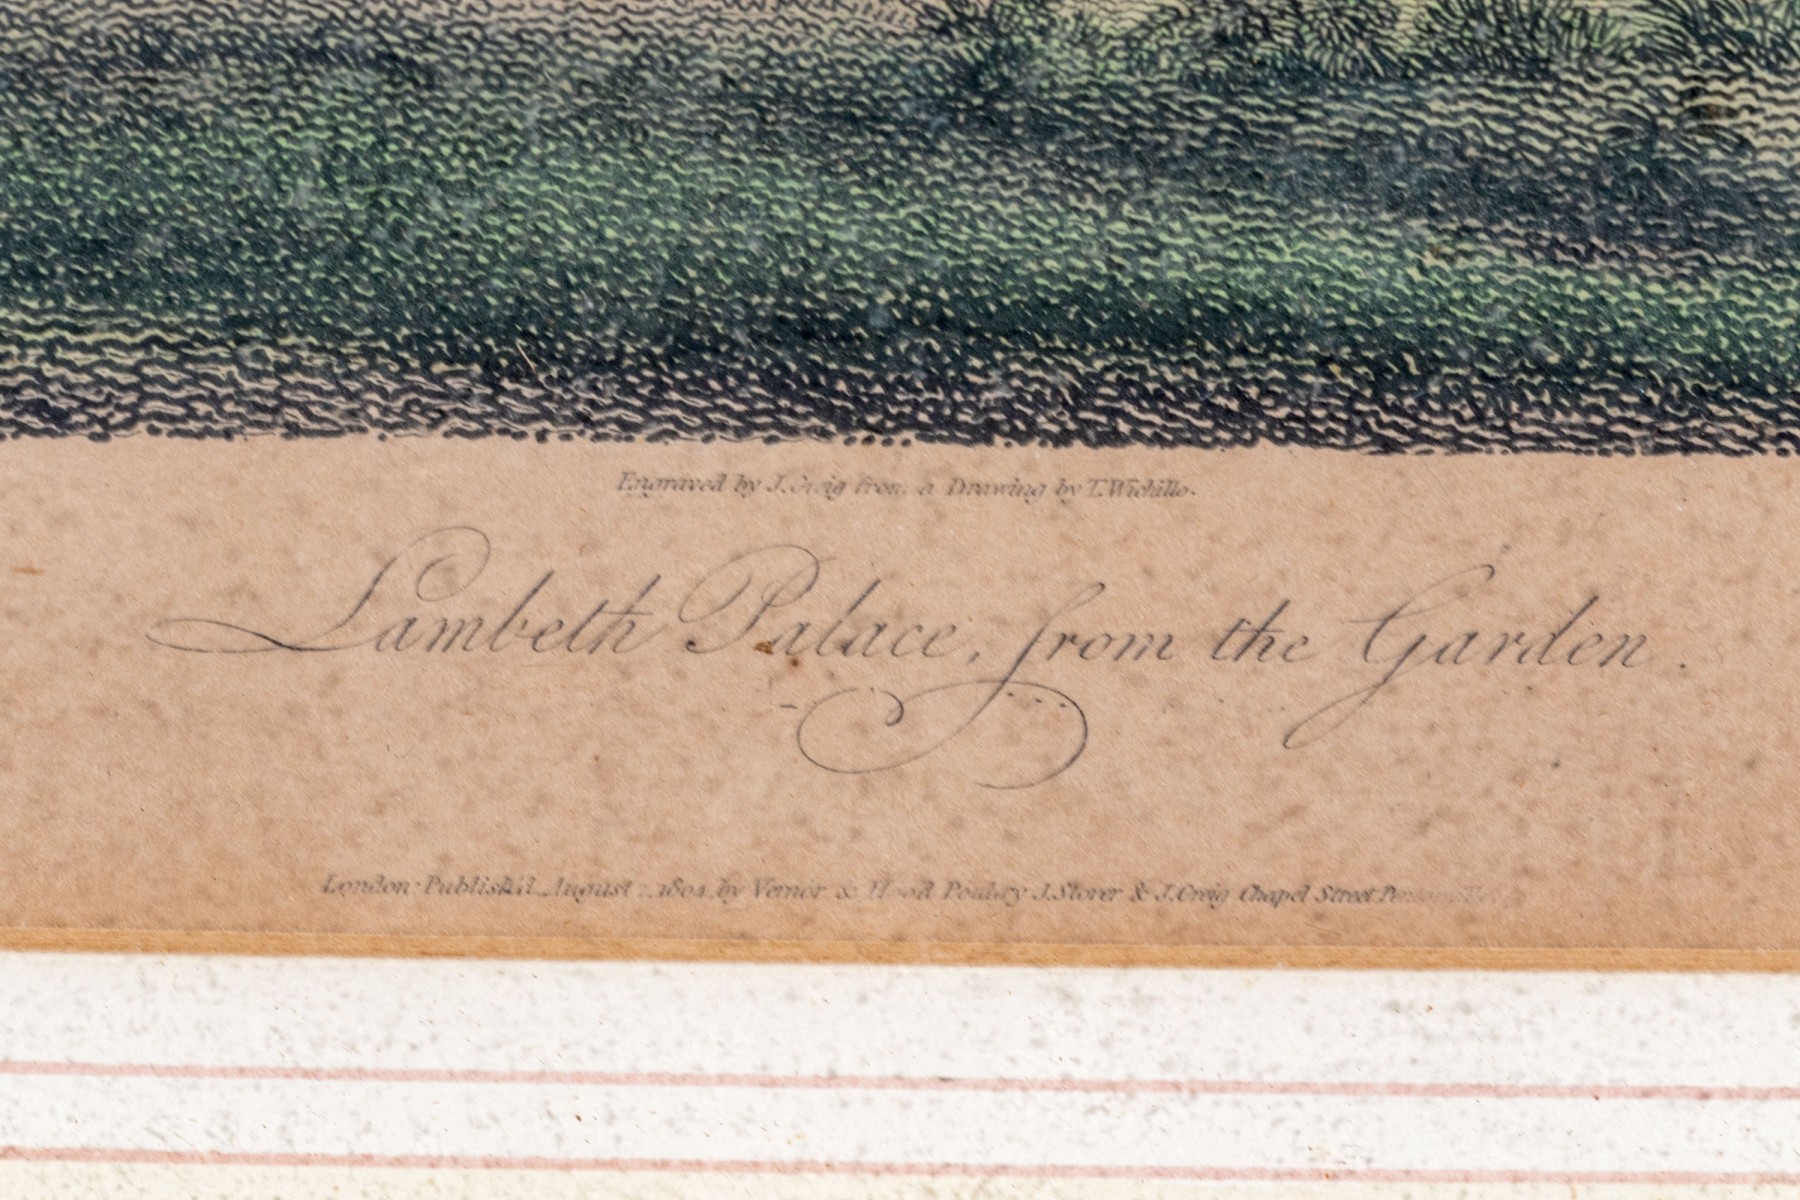 Engraved by J. Greig from a Drawing by T. Wichillo.
Lambeth Palace, from the Garden.
London: Publish'd August 1804, by Vernor & Hood Poultry J. Storer & J. Greig Chapel Street